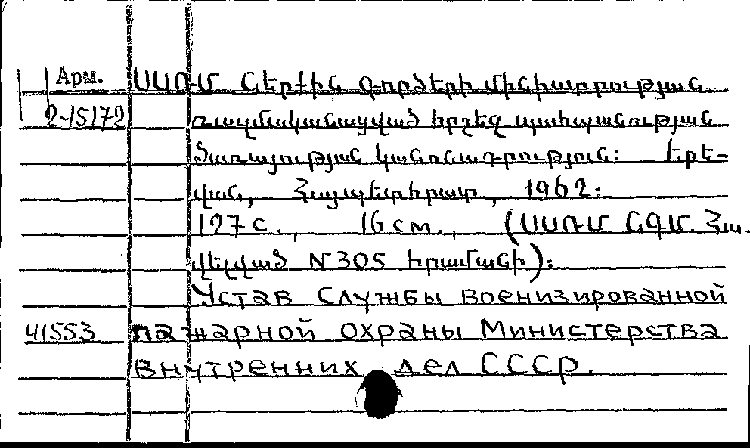 Арм. ՍՍՌՄ Ներքին գործերի մինիստրության
2-15172 ռազմականացված հրշեջ պահպանության
ծառայության կանոնադրություն: Երե-
վան, Հայպետհրատ, 1962:
127 с., 16 см., (ՍՍՌՄ ՆԳՄ. Հա.
վելված N 305 հրամանի):
Устав Службы военизированной
41553 пажарной охраны Министерства
внутренних дел СССР.